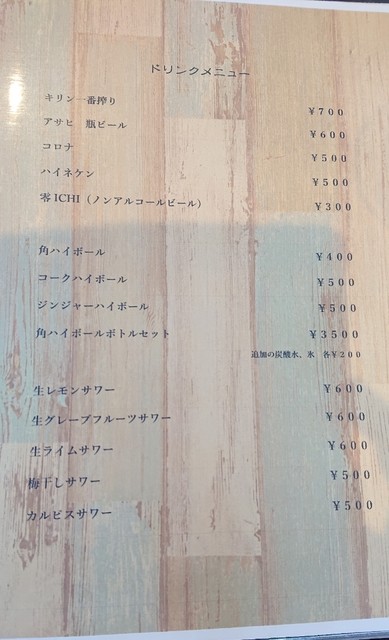 ドリンクメニュー
キリン一番搾り ￥７００
アサヒ　瓶ビール ￥６００
コロナ ￥５００
ハイネケン ￥５００
零ICHI（ノンアルコールビール） ￥３００
角ハイボール ￥４００
コークハイボール ￥５００
ジンジャーハイボール ￥５００
角ハイボールボトルセット ￥３５００
追加の炭酸水、氷　各￥２００
生レモンサワー ￥６００
生グレープフルーツサワー ￥６００
生ライムサワー ￥６００
梅干しサワー ￥５００
カルピスサワー ￥５００